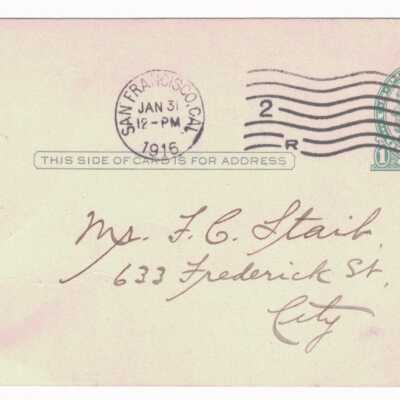 SAN FRANCISCO, CAL.
JAN 31
12-PM
1915
2
R
THIS SIDE OF CARD IS FOR ADDRESS
1
Mr. F. C. Staib,
633 Frederick St.
City